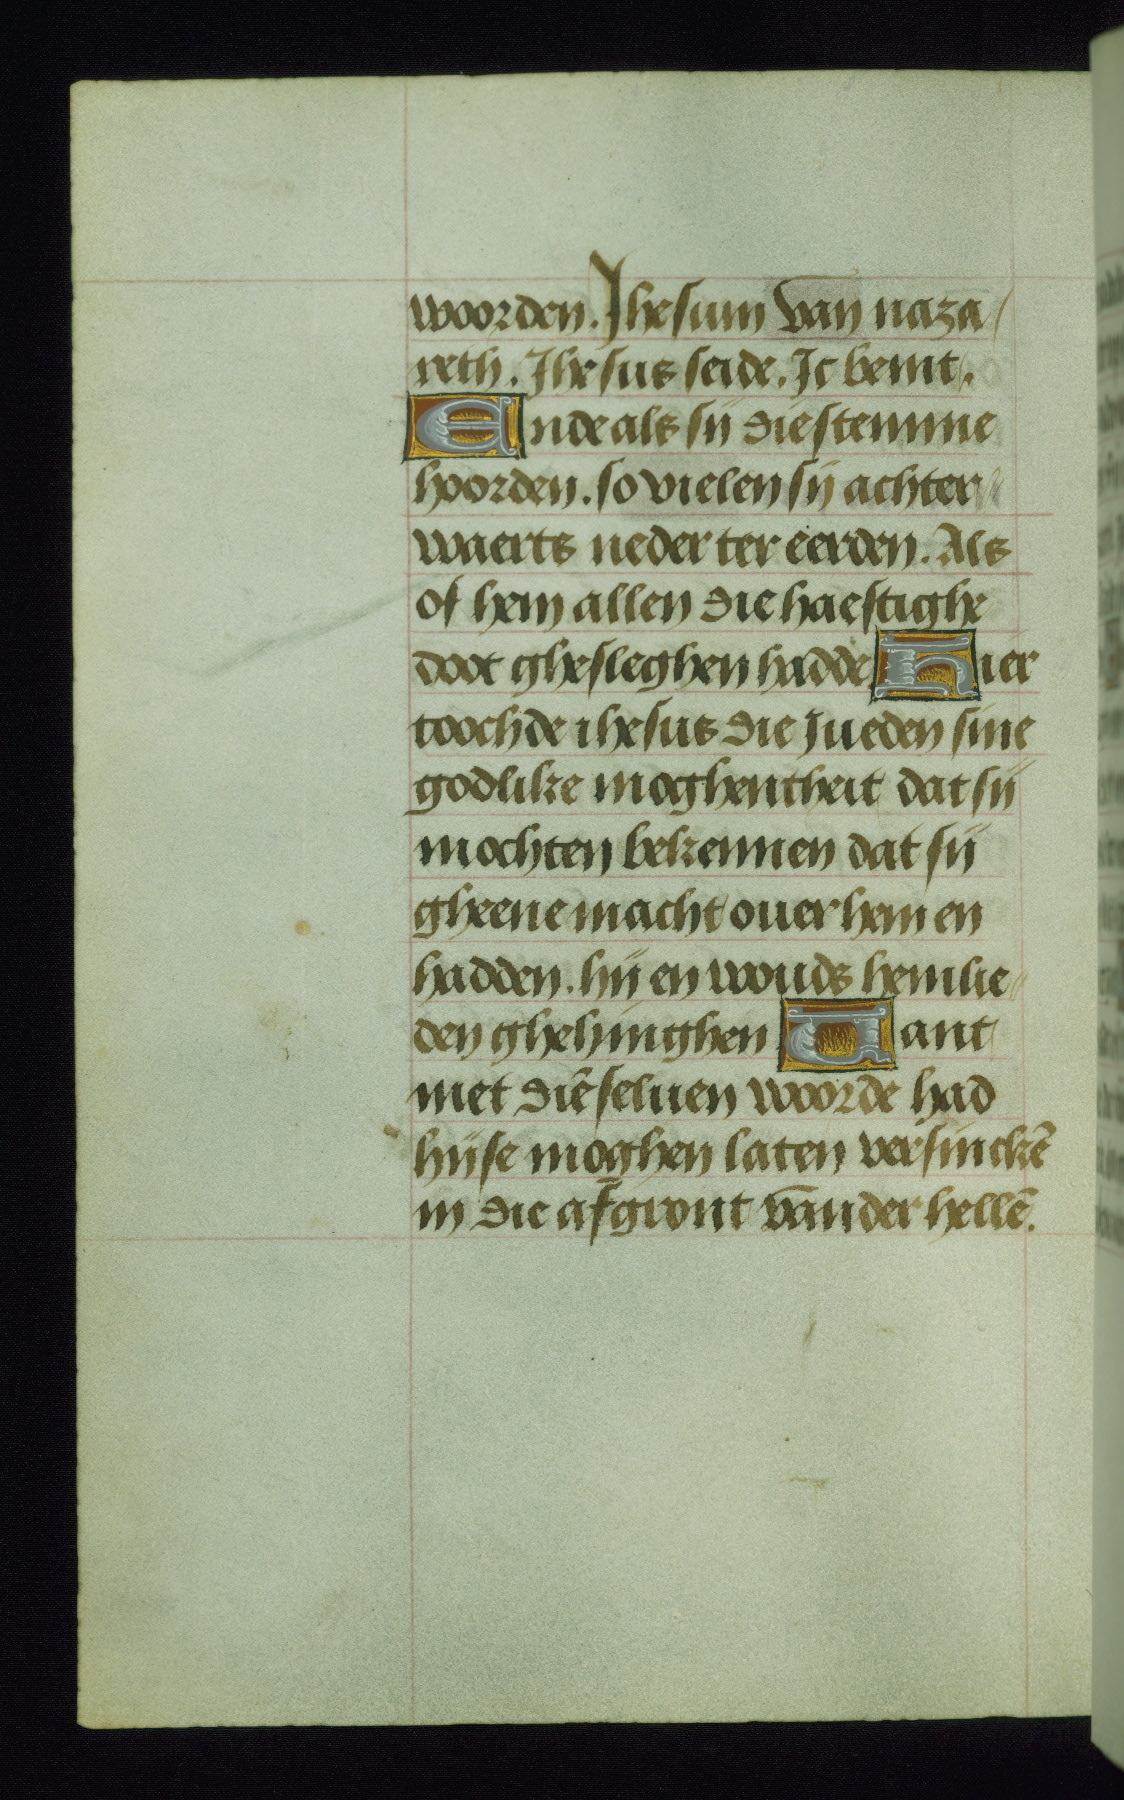 woorden. Jhesum van naza/
reth. Jhesus seide. Jc bemt.
Ende als sij die stemme
hoorden. so vielen sij achter
waerts neder ter eerden. Als
of hem allen die haestighe
doot ghesleghen hadde Hier
toochde ihesus die Jueden sine
godlike moghentheit dat sij
mochten bekennen dat sij
gheene macht ouer hem en
hadden. hij en wouds hemlie
den ghehinghen Want
met diē seluen woorde had
hijse moghen laten versinckē
in die afgront vander hellē.